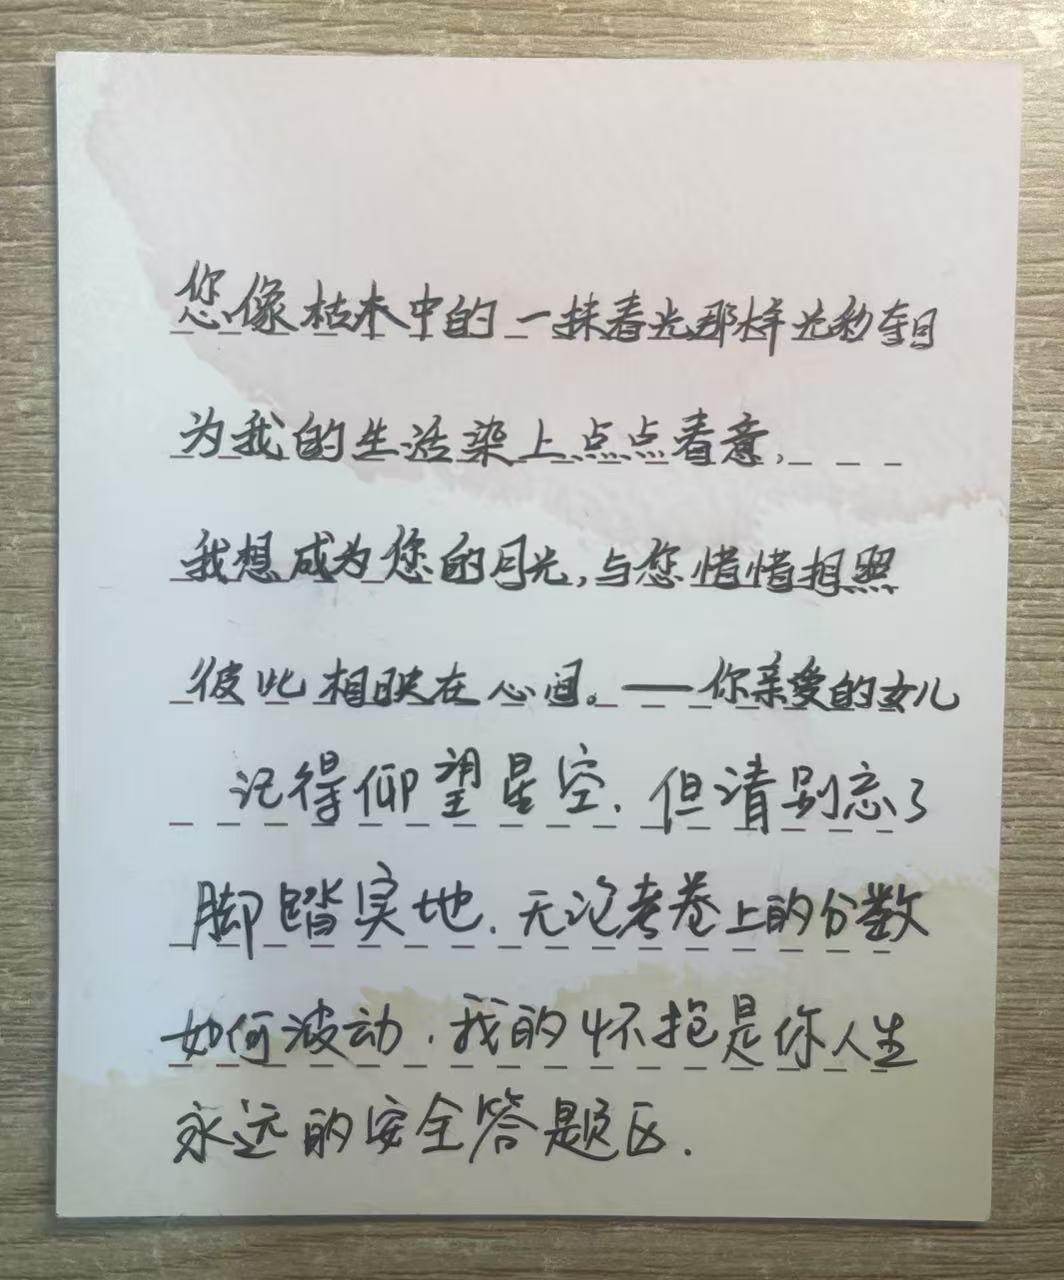 您像枯木中的一抹春光那样光彩夺目
为我的生活染上点点春意,
我想成为您的月光,与您惜惜相照
彼此相映在心间。——你亲爱的女儿
记得仰望星空,但请别忘了
脚踏实地.无论考卷上的分数
如何波动,我的怀抱是你人生
永远的安全答题区.